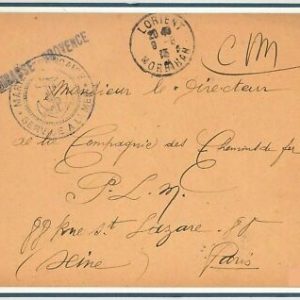 PROVENCE
LORIENT
MORBIHAN
CM
Monsieur le Directeur
de la Compagnie des Chemins de fer
P. L. M.
88 Rue St Lazare. 88
(Seine) Paris